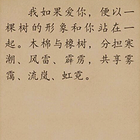 我如果爱你，便以一
棵树的形象和你站在一
起。木棉与橡树，分担寒
潮、风雷、霹雳，共享雾
霭、流岚、虹霓。